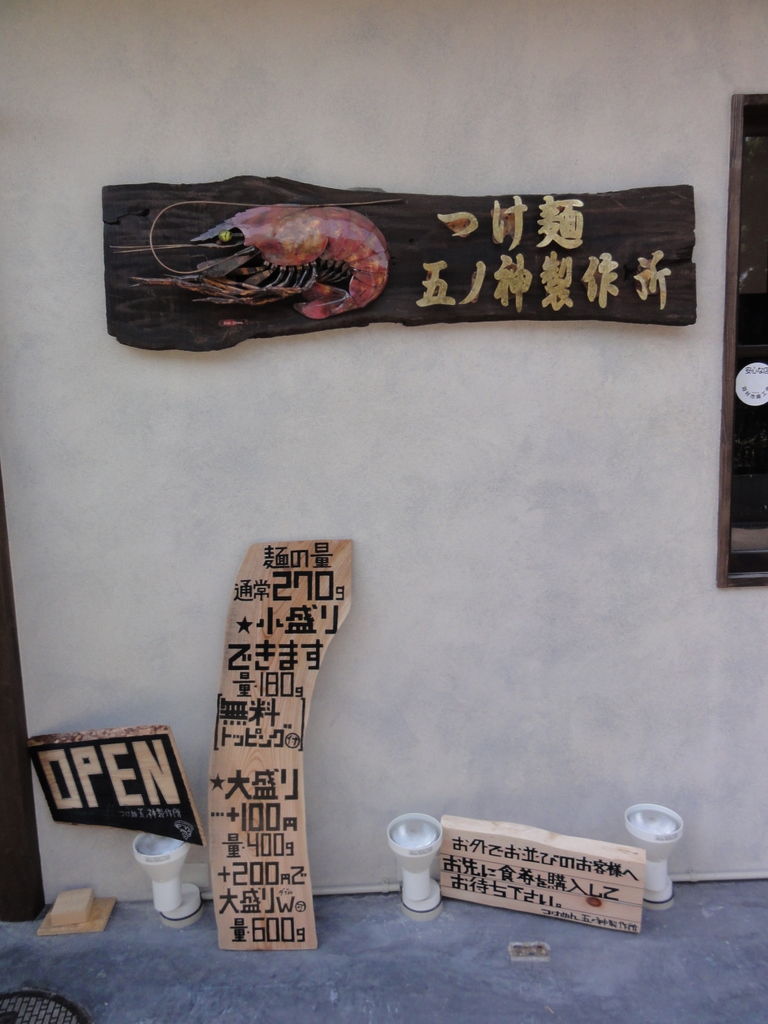 つけ麺
五ノ神製作所
安心な店
麺の量
通常270g
★小盛り
できます
量・180g
無料
トッピング付
★大盛り
…+100円
量・400g
+200円で
大盛りW
量・600g
OPEN
つけめん五ノ神製作所
お外でお並びのお客様へ
お先に食券を購入して
お待ち下さい。
つけめん五ノ神製作所